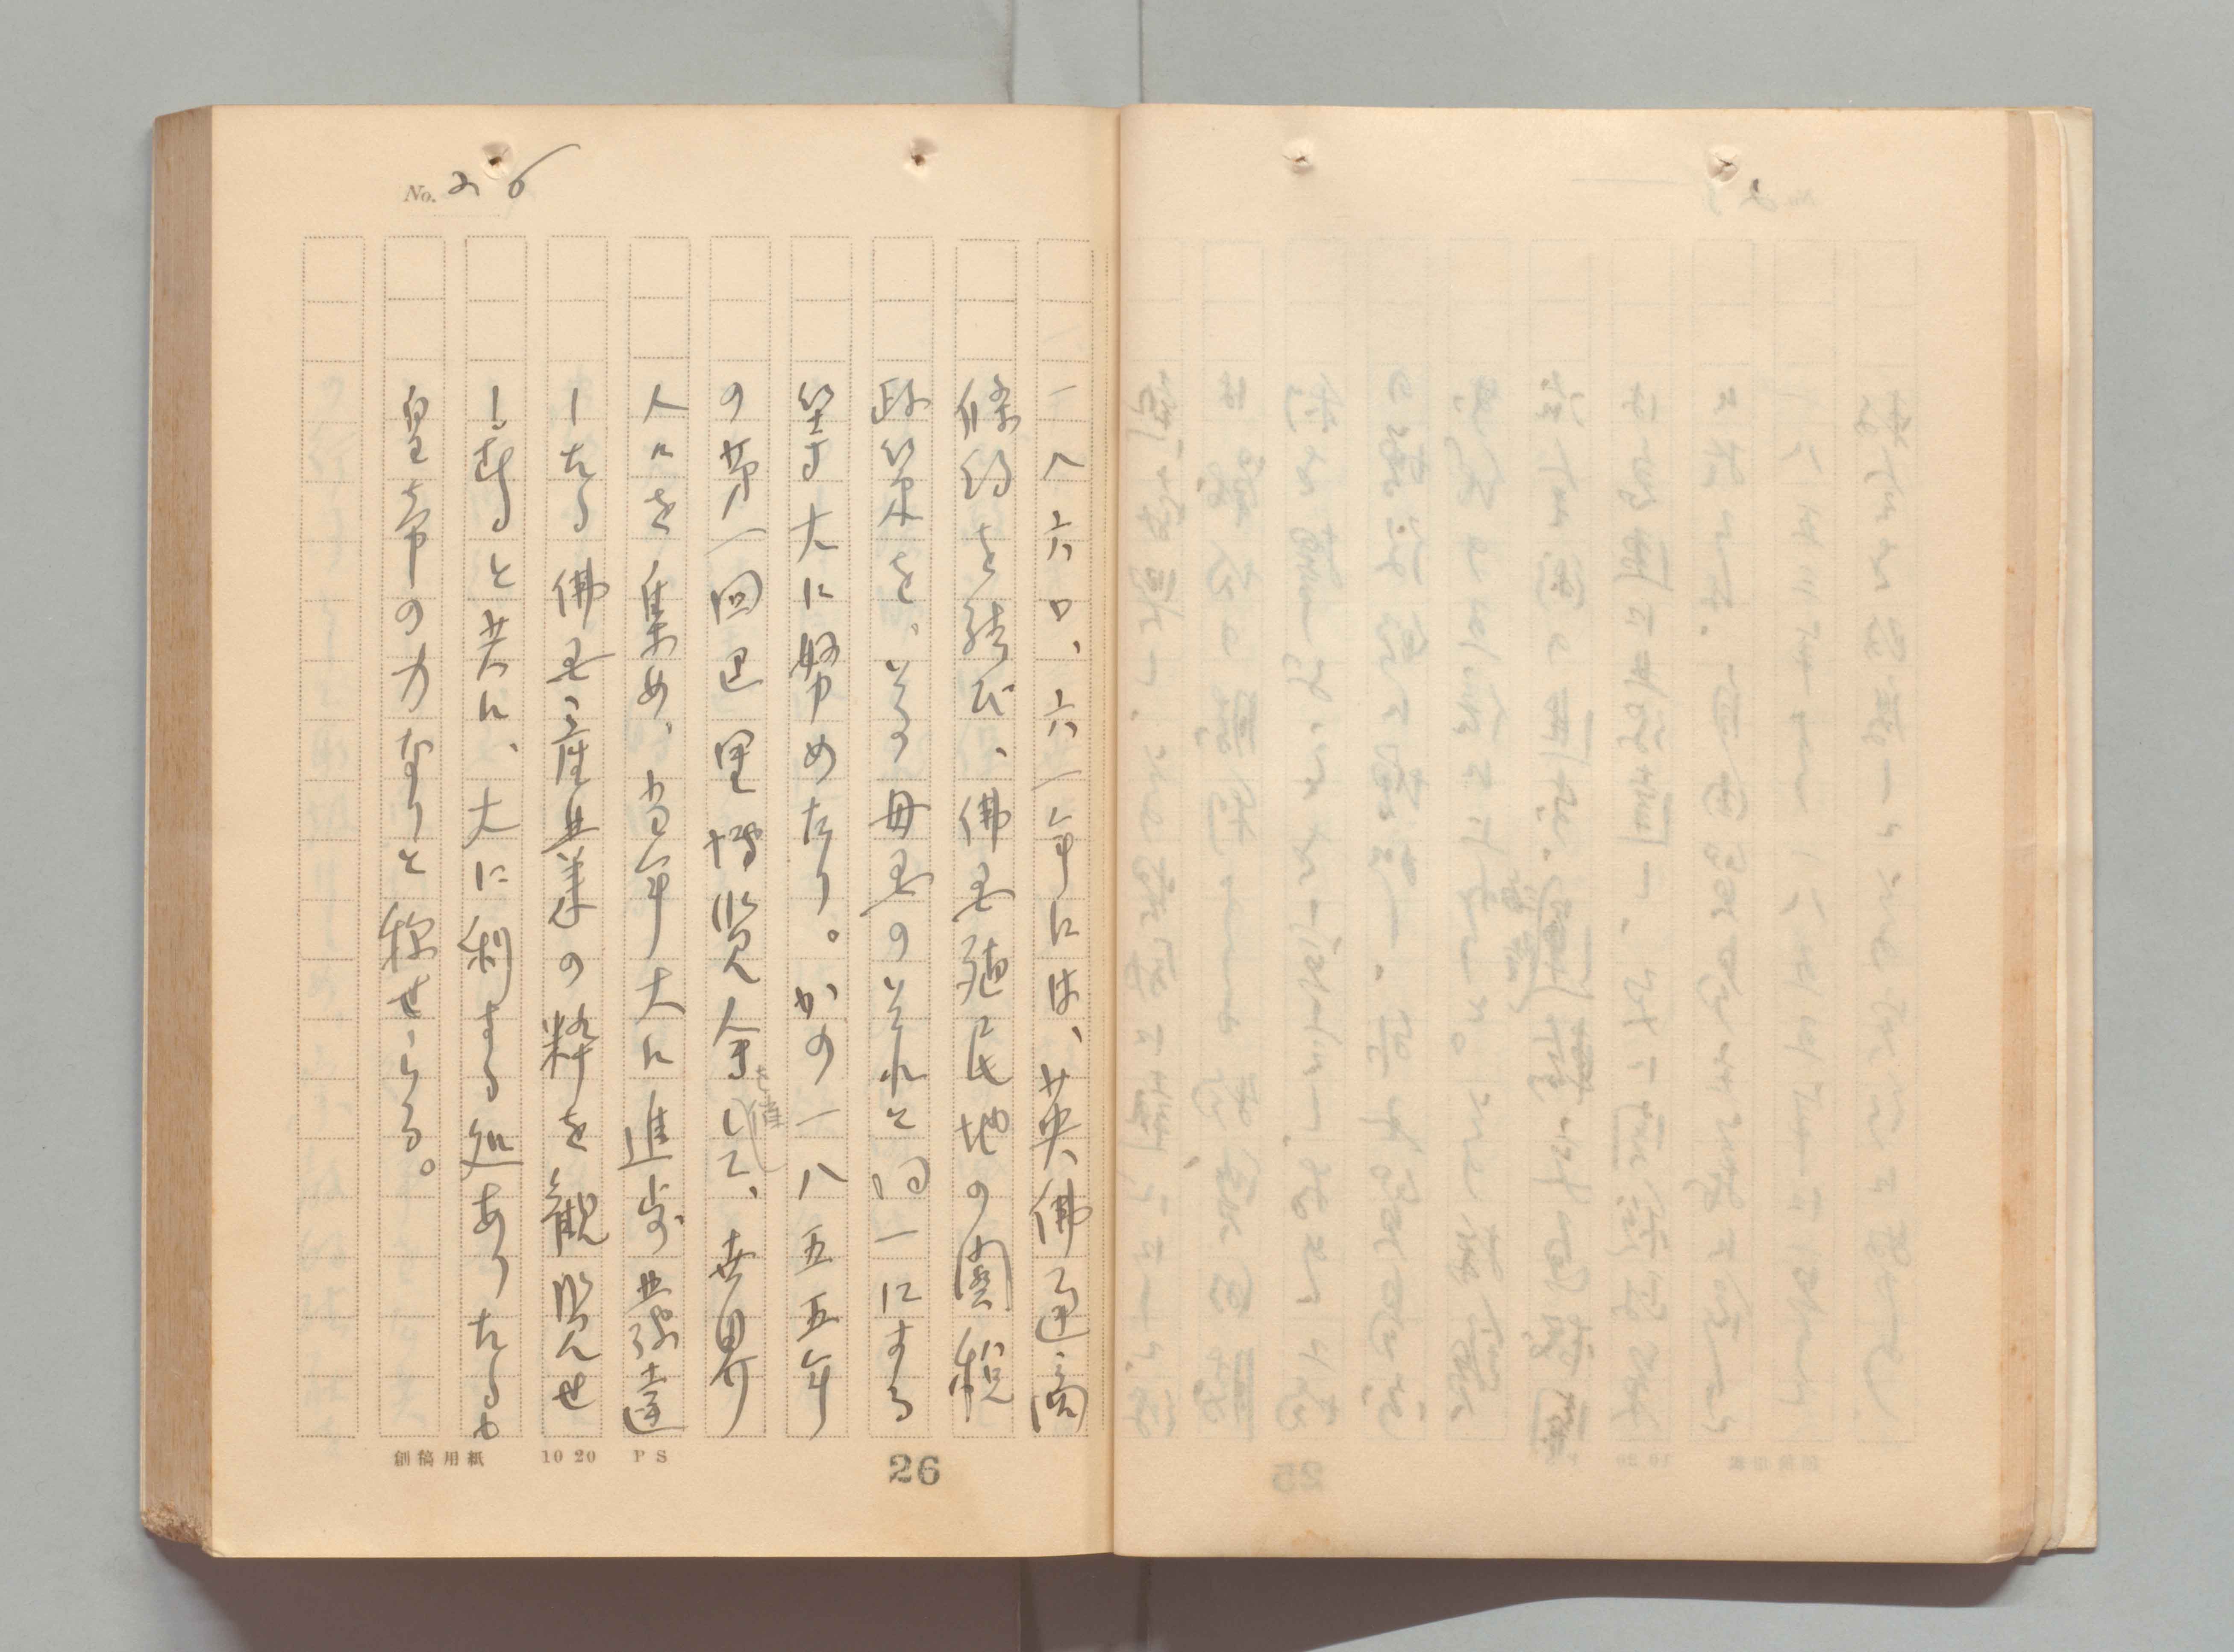 No. 26
一八六〇、六一年には、英佛通商
條約を結び、佛国殖民地の関税
政策を、その母国のそれと同一にする
等大に努めたり。かの一八五五年
の第一回巴里博覧会を催して、世界
人々を集め、当年大に進歩発達
したる佛国産業の粋を観覧せ
しむると共に、大に利する処ありたるも
皇帝の力なりと称せらる。
創稿用紙 10 20 P S
26